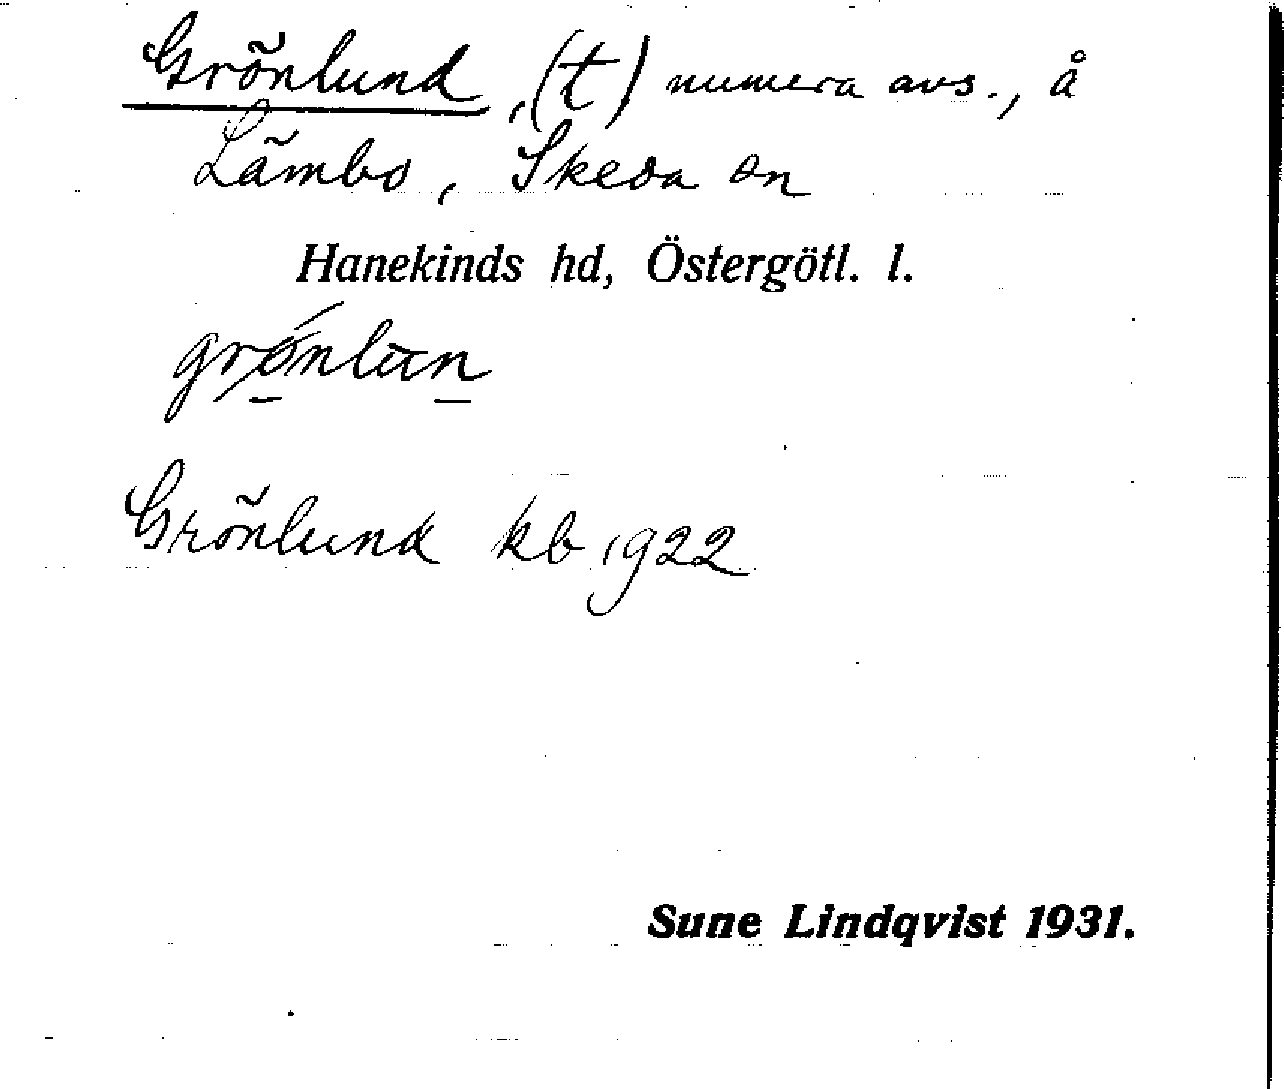 Grönlund, (t) numera avs., å
Lämbo, Skeda sn
Hanekinds hd, Östergötl. l.
grø̀nlun
Grönlund kb 1922
Sune Lindqvist 1931.